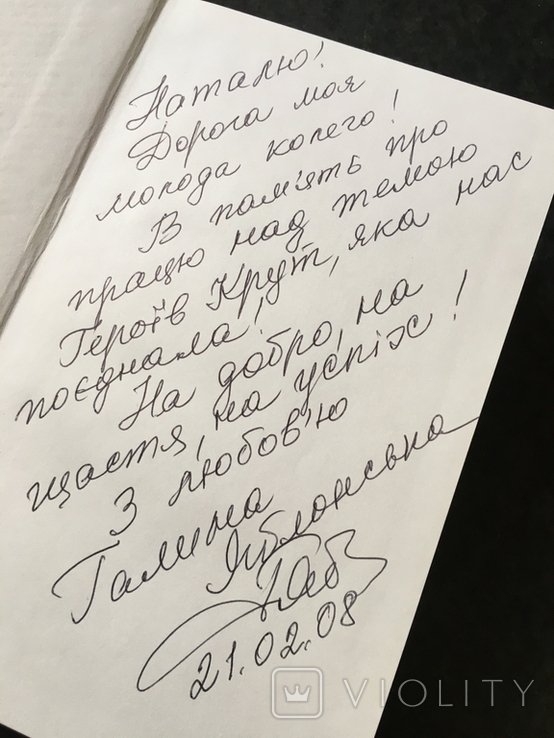 Наталю!
Дорога моя
молода колего!
В пам'ять про
працю над темою
Героїв Крут, яка нас
поєднала!
На добро, на
щастя, на успіх!
З любов'ю
Галина
Яблонська
21.02.08
VIOLITY